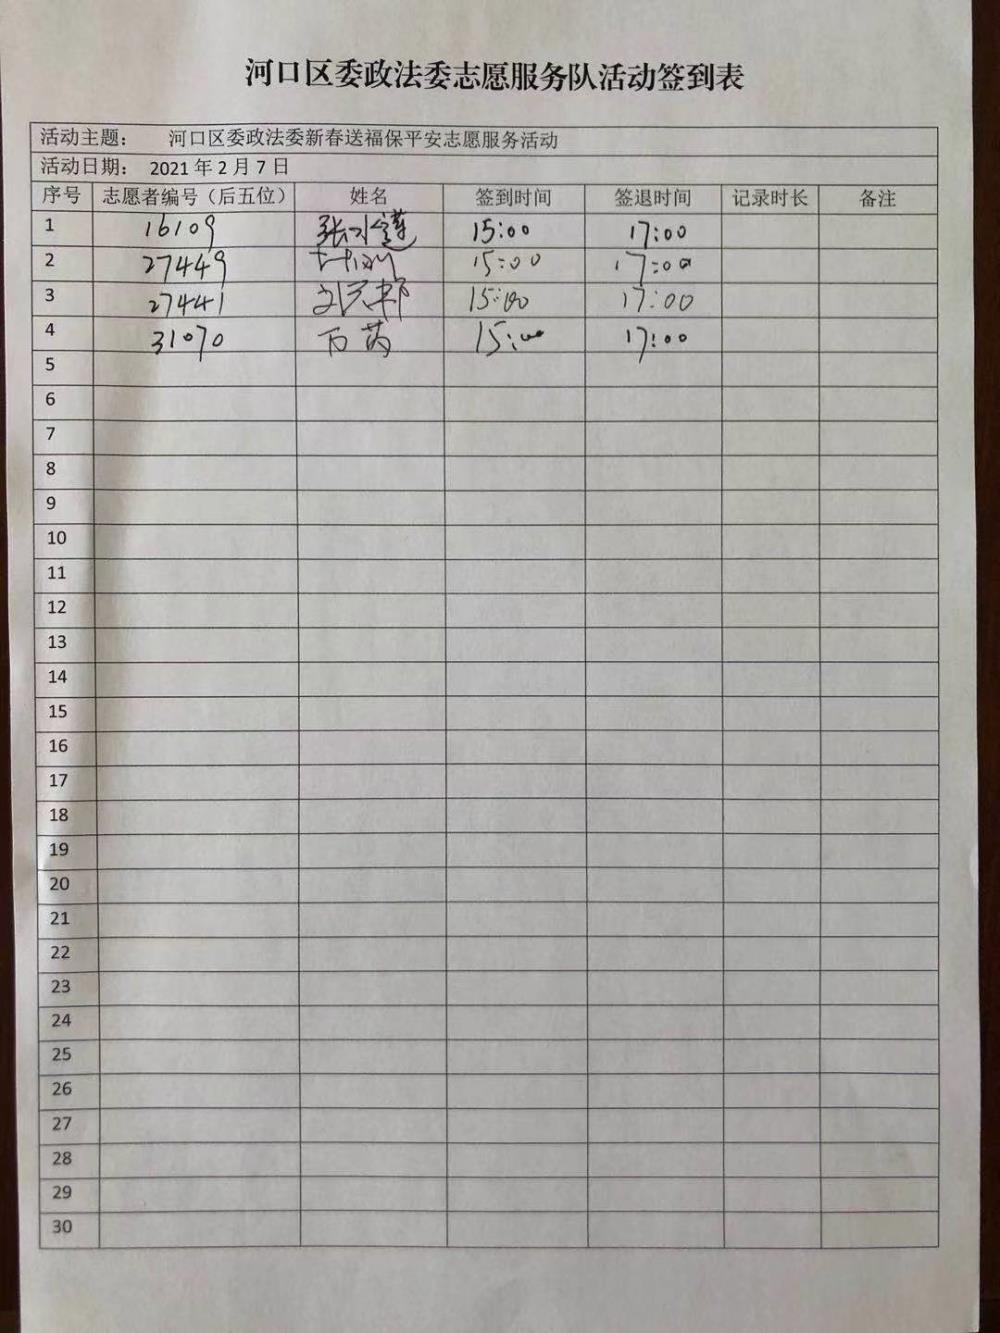 河口区委政法委志愿服务队活动签到表
活动主题： 河口区委政法委新春送福保平安志愿服务活动
活动日期： 2021 年 2 月 7 日
序号 志愿者编号（后五位） 姓名 签到时间 签退时间 记录时长 备注
1 16109 张 15:00 17:00
2 27449 15:00 17:00
3 27441 15:00 17:00
4 31070 万芮 15:00 17:00
5
6
7
8
9
10
11
12
13
14
15
16
17
18
19
20
21
22
23
24
25
26
27
28
29
30